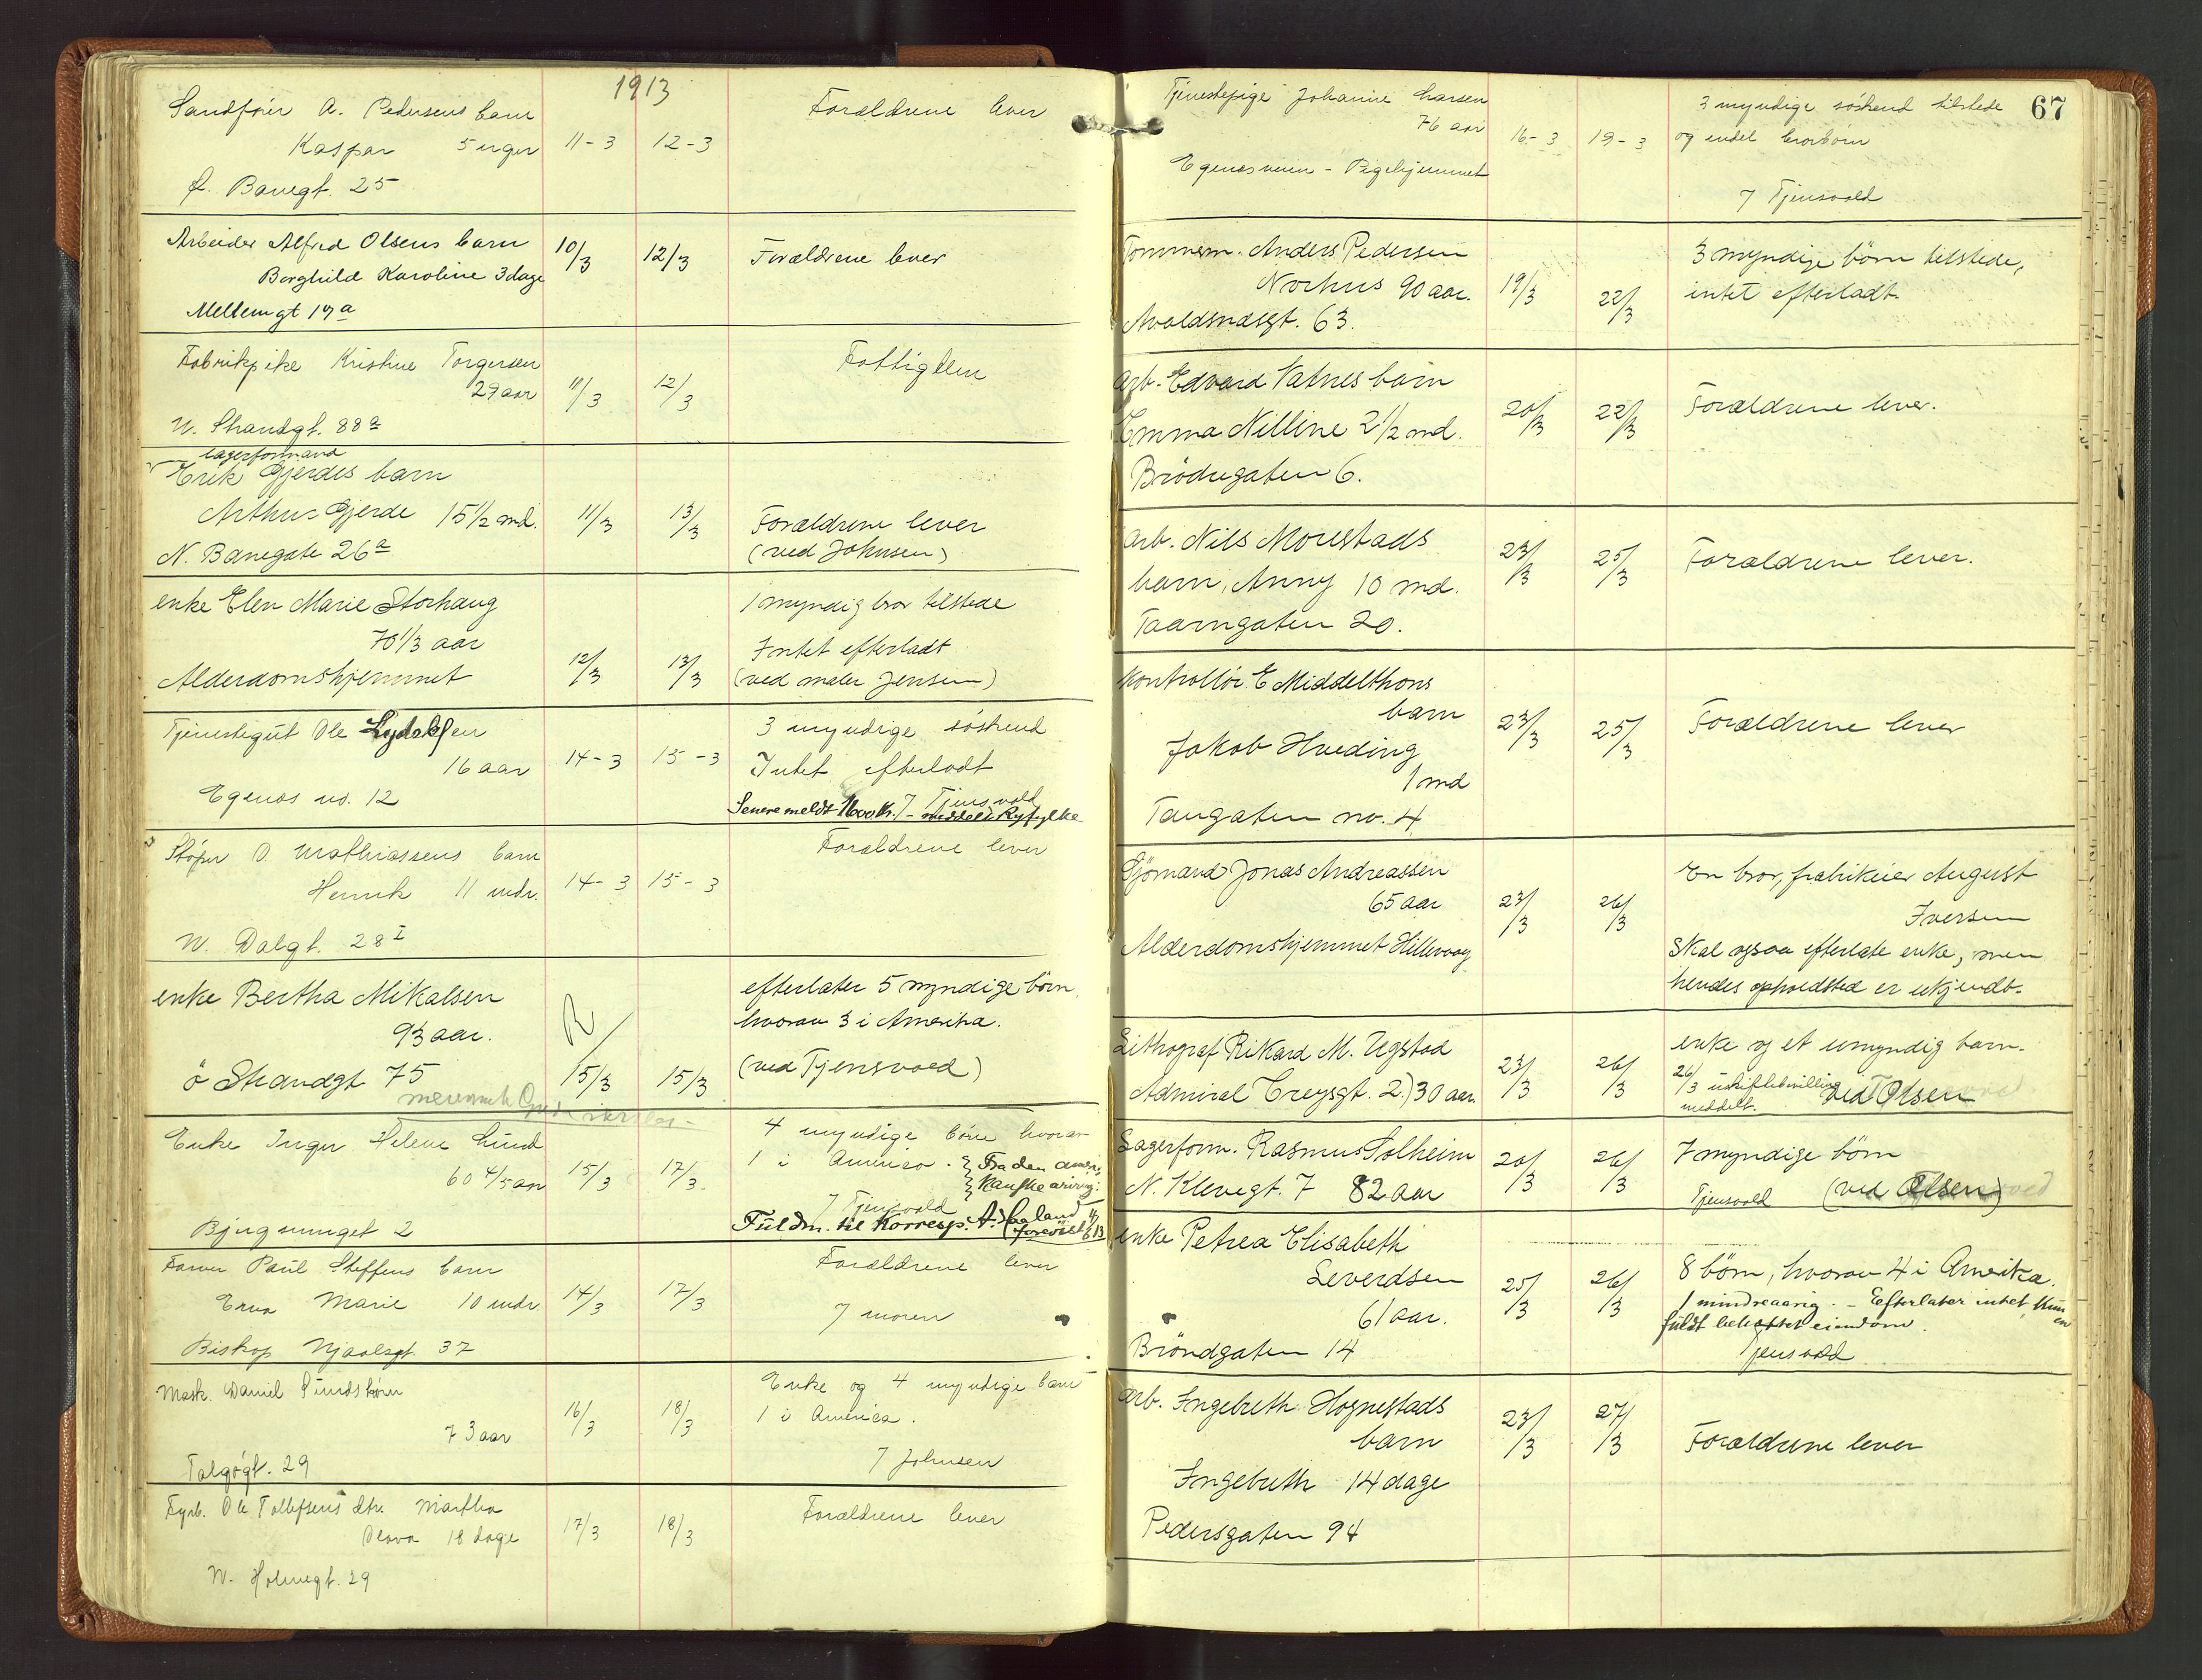 1913
Sandkjører A. Pedersens barn
Kaspar 5 uger 11-3 12-3 Forældrene lever
Ø. Banegt. 25
Arbeider Alfred Olsens barn
Borghild Karoline 3 dage 10/3 12/3 Forældrene lever
Mellemgt 17a
Fabrikpike Kristine Torgersen
29 aar 11/3 12/3 Fattiglem
N. Strandgt. 88a
lagerformand
Erik Gjerdes barn
Arthur Gjerde 15 1/2 md. 11/3 13/3 Forældrene lever
N. Banegate 26a (ved Johnsen)
enke Elen Marie Storhaug 1 myndig bror tilstede
70 1/3 aar Intet efterladt
Alderdomshjemmet 12/3 13/3 (ved maler Jensen)
Tjenestegut Ole 3 myndige søskend
16 aar 14-3 15-3 Intet efterladt
Egenæs no. 12 7 Tjensvold
Senere meldt 1600 Kr. - meddelt Ryfylke
Støper O. Mathiassens barn Forældrene lever
Henrik 11 mdr. 14-3 15-3
N. Dalgt. 28 I
enke Bertha Mikalsen efterlater 5 myndige børn,
93 aar. hvorav 3 i Amerika.
ø Strandgt 75 15/3 15/3 (ved Tjensvold)
Enke Inger Helene Lund 4 myndige børn hvorav
60 4/5 aar 15/3 17/3 1 i America. Fra den ameri-
kanske arving:
7 Tjensvold
Bjergsmuget 2 Fuldm. til Korresp. A. Haaland
Farver Paul Steffens barn Forældrene lever
Erna Marie 10 mdr. 14/3 17/3 7 moren
Biskop Njaalsgt. 37
Mask. Daniel Sundsbøen Enke og 4 myndige barn
73 aar 16/3 18/3 1 i America.
Talgøgt. 29 7 Johnsen
Fyrb. Ole Tollefsens dtr. Martha Forældrene lever
Olava 18 dage 17/3 18/3
N. Holmegt. 29
67
Tjenestepige Johanne Larsen 3 myndige søskend tilstede
76 aar 16-3 19-3 og endel brorbarn
Egenæsveien - Pigehjemmet
7 Tjensvold
Tømmerm. Anders Pedersen 3 myndige børn tilstede,
Norhus 90 aar. 19/3 22/3 intet efterladt.
Avaldsnæsgt. 63.
arb. Edvard Vatnes barn
Emma Nilline 2 1/2 md. 20/3 22/3 Forældrene lever.
Brødregaten 6.
arb. Nils Morestads
barn, Anny 10 md. 23/3 25/3 Forældrene lever.
Taarngaten 20.
Kontrollør E Middelthons
barn
Jakob Hveding 23/3 25/3 Forældrene lever
1 md
Taugaten no. 4
Sjømand Jonas Andreassen En bror, fabrikeier August
65 aar 23/3 26/3 Iversen
Alderdomshjemmet Hillevaag Skal ogsaa efterlate enke, men
hendes opholdsted er ukjendt.
Lithograf Rikard M. Ugstad enke og et umyndig barn.
Admiral Creysgt. 2.) 30 aar. 23/3 26/3 26/3 uskiftebevilling
meddelt. ved Olsen
Lagerform. Rasmus Solheim 7 myndige børn
N. Klevegt. 7 82 aar 20/3 26/3 Tjensvold (ved Olsen)
enke Petrea Elisabeth
Severdsen 8 børn, hvorav 4 i Amerika.
61 aar. 25/3 26/3 1 mindreaarig. - Efterlater intet kun en
fuldt beheftet eiendom.
Brøndgaten 14 Tjensvold
arb. Ingebreth Hognestads
barn 23/3 27/3 Forældrene lever
Ingebreth 14 dage
Pedersgaten 94